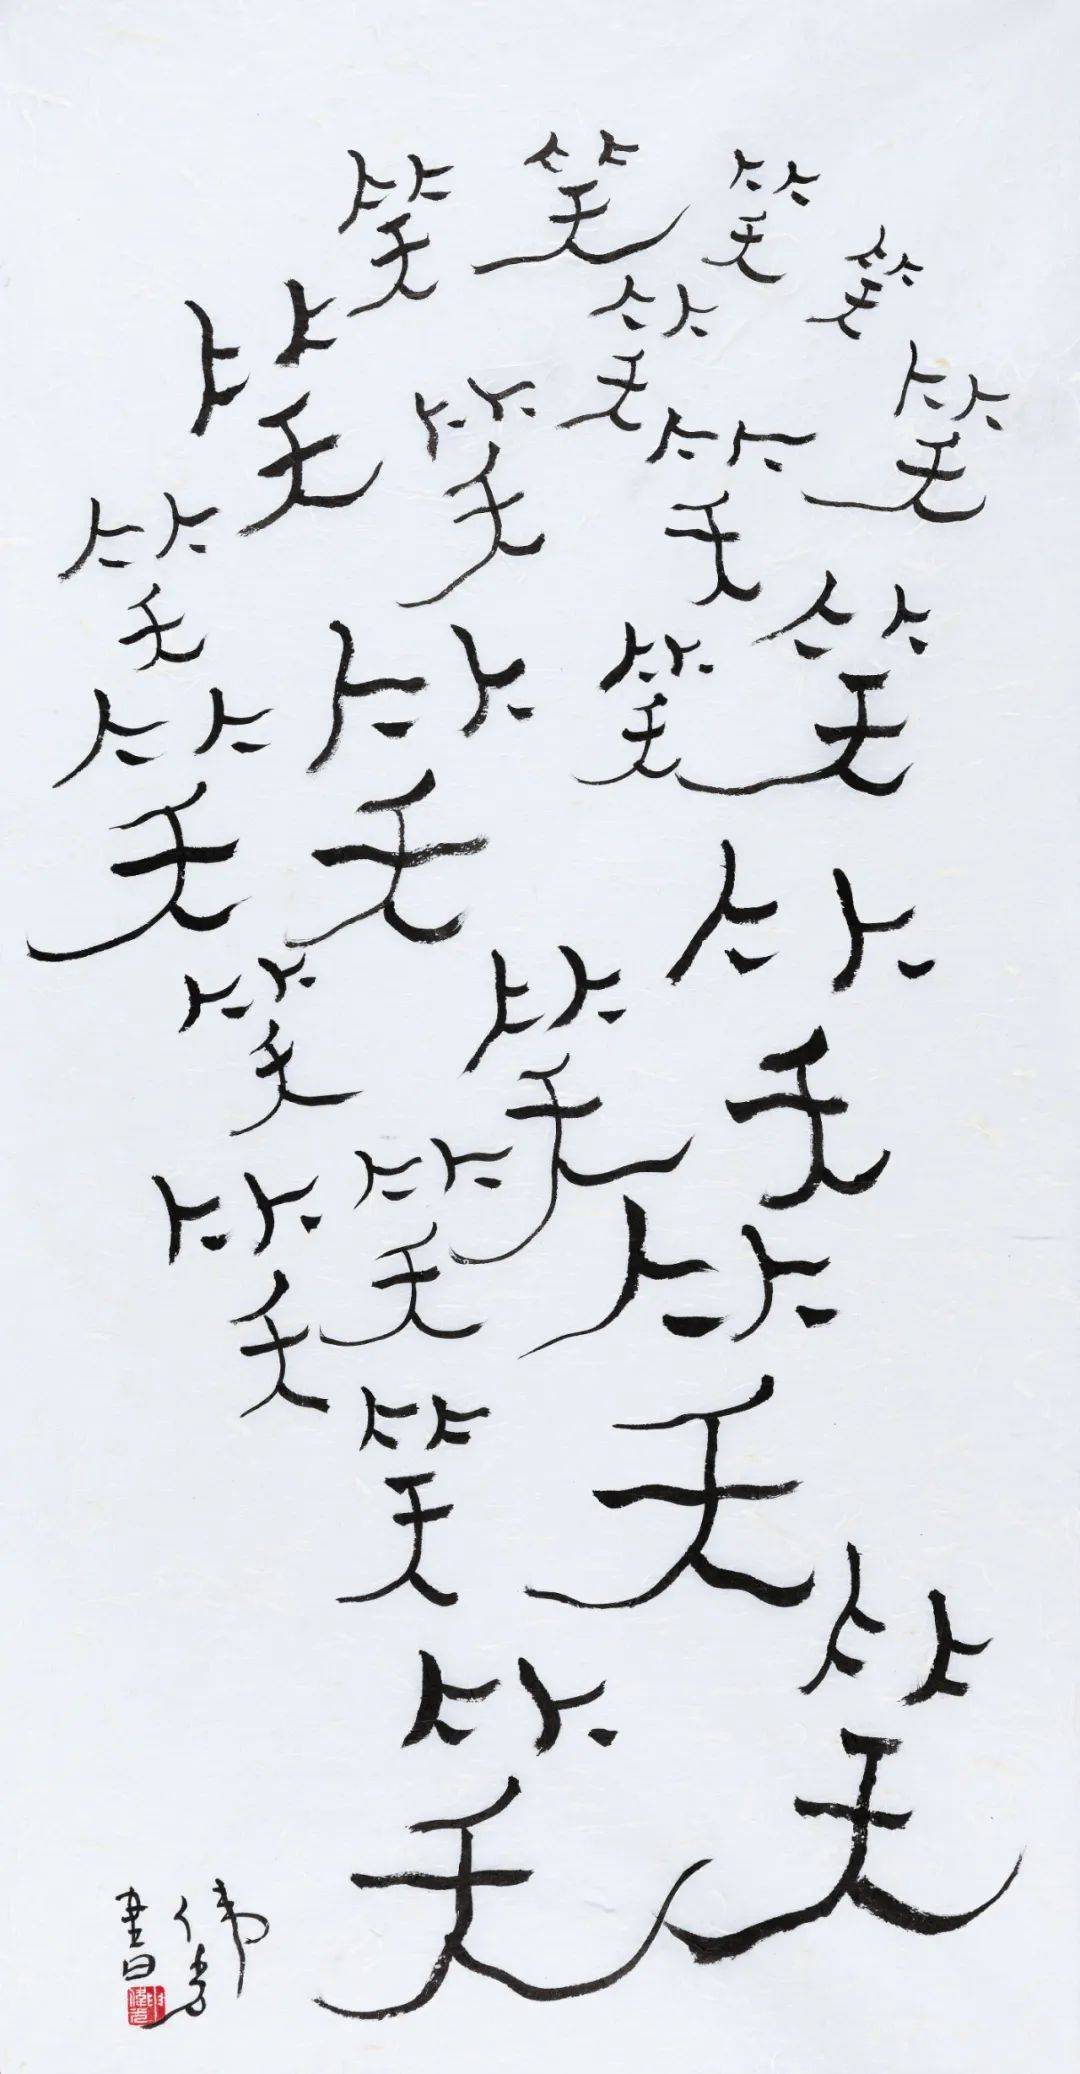 笑笑笑笑
笑笑笑
笑笑笑
笑笑笑笑
笑笑笑
笑笑笑
笑
笑笑
伟
書